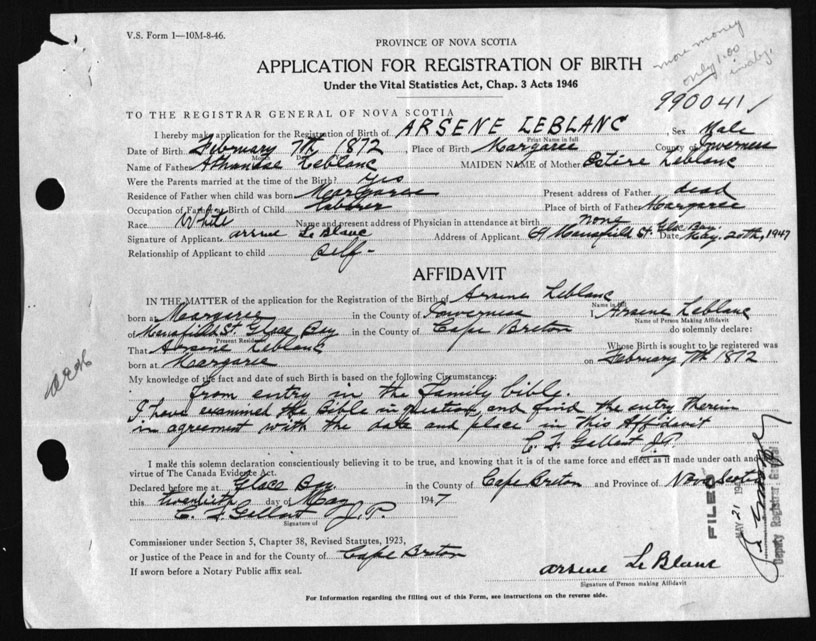 V.S. Form 1—10M-8-46.
more money
only 1.00
PROVINCE OF NOVA SCOTIA
APPLICATION FOR REGISTRATION OF BIRTH
Under the Vital Statistics Act, Chap. 3 Acts 1946
990041
TO THE REGISTRAR GENERAL OF NOVA SCOTIA
I hereby make application for the Registration of Birth of ARSENE LEBLANC, Sex Male
Print Name in full
Date of Birth February 7th 1872, Place of Birth Margaree County of Inverness
Name of Father Leblanc MAIDEN NAME of Mother Leblanc
Were the Parents married at the time of the Birth? Yes
Residence of Father when child was born Margaree Present address of Father dead
Occupation of Father Birth of Child laborer Place of birth of Father Margaree
Race White Name and present address of Physician in attendance at birth none
Signature of Applicant arsene Le Blanc Address of Applicant 69 Mansfield St. Glace Bay. Date May. 20th, 1947
Relationship of Applicant to child Self -
AFFIDAVIT
IN THE MATTER of the application for the Registration of the Birth of Arsene Leblanc
Name in full
born at Margaree in the County of Inverness I Arsene Leblanc
Name of Person Making Affidavit
of Mansfield St. Glace Bay in the County of Cape Breton do solemnly declare:
Present Residence
That Arsene Leblanc Whose Birth is sought to be registered was
born at Margaree on February 7th 1872
My knowledge of the fact and date of such Birth is based on the following Circumstances:
From entry in the Family bible.
I have examined the Bible in question and find the entry therein
in agreement with the date and place in this Affidavit
J.P.
I make this solemn declaration conscientiously believing it to be true, and knowing that it is of the same force and effect as if made under oath and
virtue of The Canada Evidence Act.
Declared before me at Glace Bay. in the County of Cape Breton and Province of Nova Scotia
this twentieth day of May 1947
J.P.
Signature of
Commissioner under Section 5, Chapter 38, Revised Statutes, 1923,
or Justice of the Peace in and for the County of Cape Breton
If sworn before a Notary Public affix seal.
arsene Le Blanc
Signature of Person making Affidavit
For Information regarding the filling out of this Form, see instructions on the reverse side.
FILED
MAY 21
Deputy Registrar General